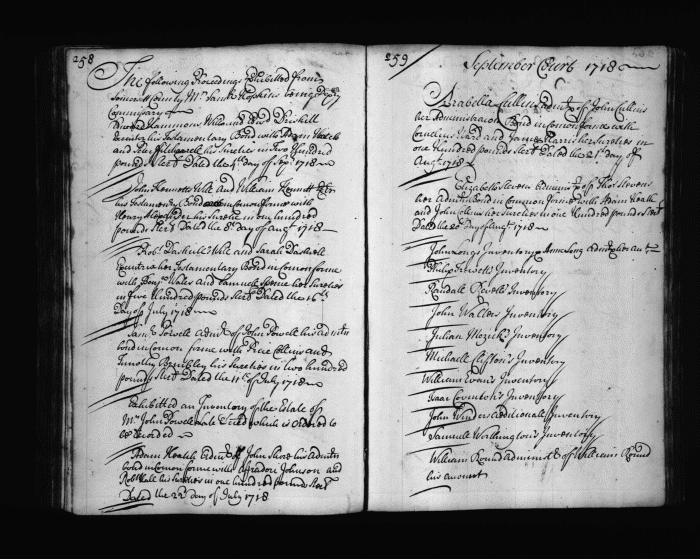 258
The following Proceedings Exhibitted from
Somersett County Mr. Saml Hopkins being Depty
Commissary of
Hammons Will and Bond Driskill
Executor his Testamentary Bond with Adam Heath
and Peter his sureties in Two Hundred
pounds Sterl Dated the 4th day of 1718
John Kennetts Will and William Kennett Extr
his Testamentry Bond in Common forme with
Henry his suretie in one hundred
pounds Sterl Dated the 8th Day of augt 1718
Robt Dashiell Will and Sarah Dashiell
Executrix her Testamentary Bond in Comon forme
with Benja Wales and Samuell her sureties
in five Hundred pounds Sterl Dated the 16th
Day of July 1718
Saml Powell admr of John Powell his admin
bond in Comon forme with Collins and
Timothy his sureties in two hundred
pounds Sterl Dated the 11th of July 1718
Exhibitted an Inventory of the Estate of
Mr John late Decd which is ordered to
be Recorded
Adam Heath admr of John his admin
bond in Comon forme with Johnson and
Robt Hall his sureties in one hundred pounds Sterl
Dated the 22d day of July 1718
259
September Court 1718
Arabella Cullins admx of John Cullins
her Administration Bond in Comon forme with
Cornelius Ward and James Harris her sureties in
one Hundred pounds Sterl Dated the 21st Day of
Augt 1718
Elizabeth Stevens admx of Tho: Stevens
her Admin Bond in Common forme with Adam Heath
and John her sureties in one Hundred pounds Sterl
Dated the 20 day of Augt 1718
John Longs Inventory Long Admx her act
Philip Inventory
Randall Revells Inventory
John Wallers Inventory
Julian Inventory
Michaell Clifton's Inventory
William Evan's Inventory
Isaac Coventon's Inventory
John Winders additionall Inventory
Samuell Inventory
William Round Administr of William Round
his amount